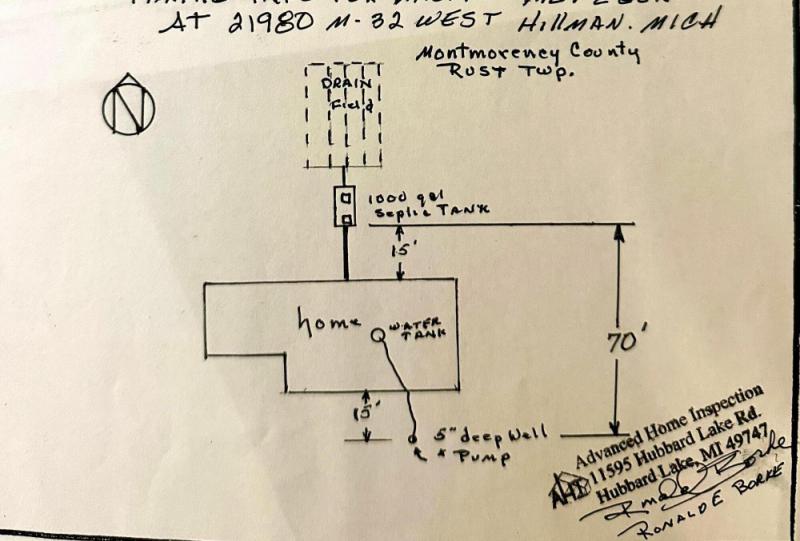 AT 21980 M-32 WEST HILLMAN. MICH
Montmorency County
RUST TWP.
N
DRAIN
Field
1000 gal
Septic TANK
15'
home
WATER
TANK
70'
15'
5" deep Well
& PUMP
Advanced Home Inspection
11595 Hubbard Lake Rd.
Hubbard Lake, MI 49747
AHI
Ronald E Borke
RONALD E BORKE